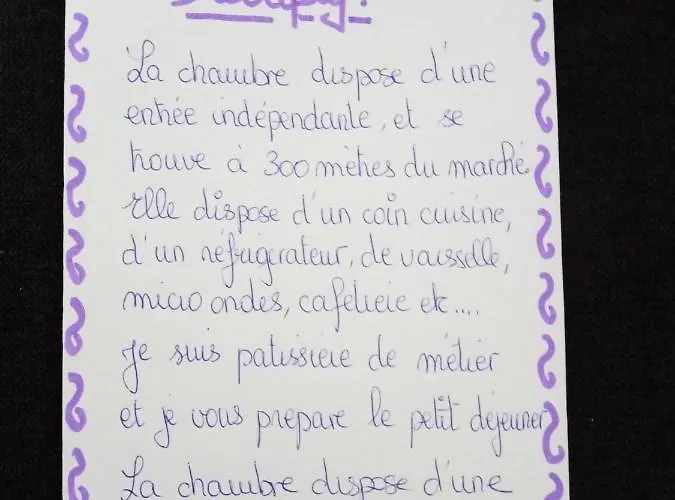 La chambre dispose d'une
entrée indépendante, et se
trouve à 300 mètres du marché.
Elle dispose d'un coin cuisine,
d'un réfrigérateur, de vaisselle,
micro ondes, cafetière etc....
Je suis patissiere de métier
et je vous prepare le petit déjeuner
La chambre dispose d'une